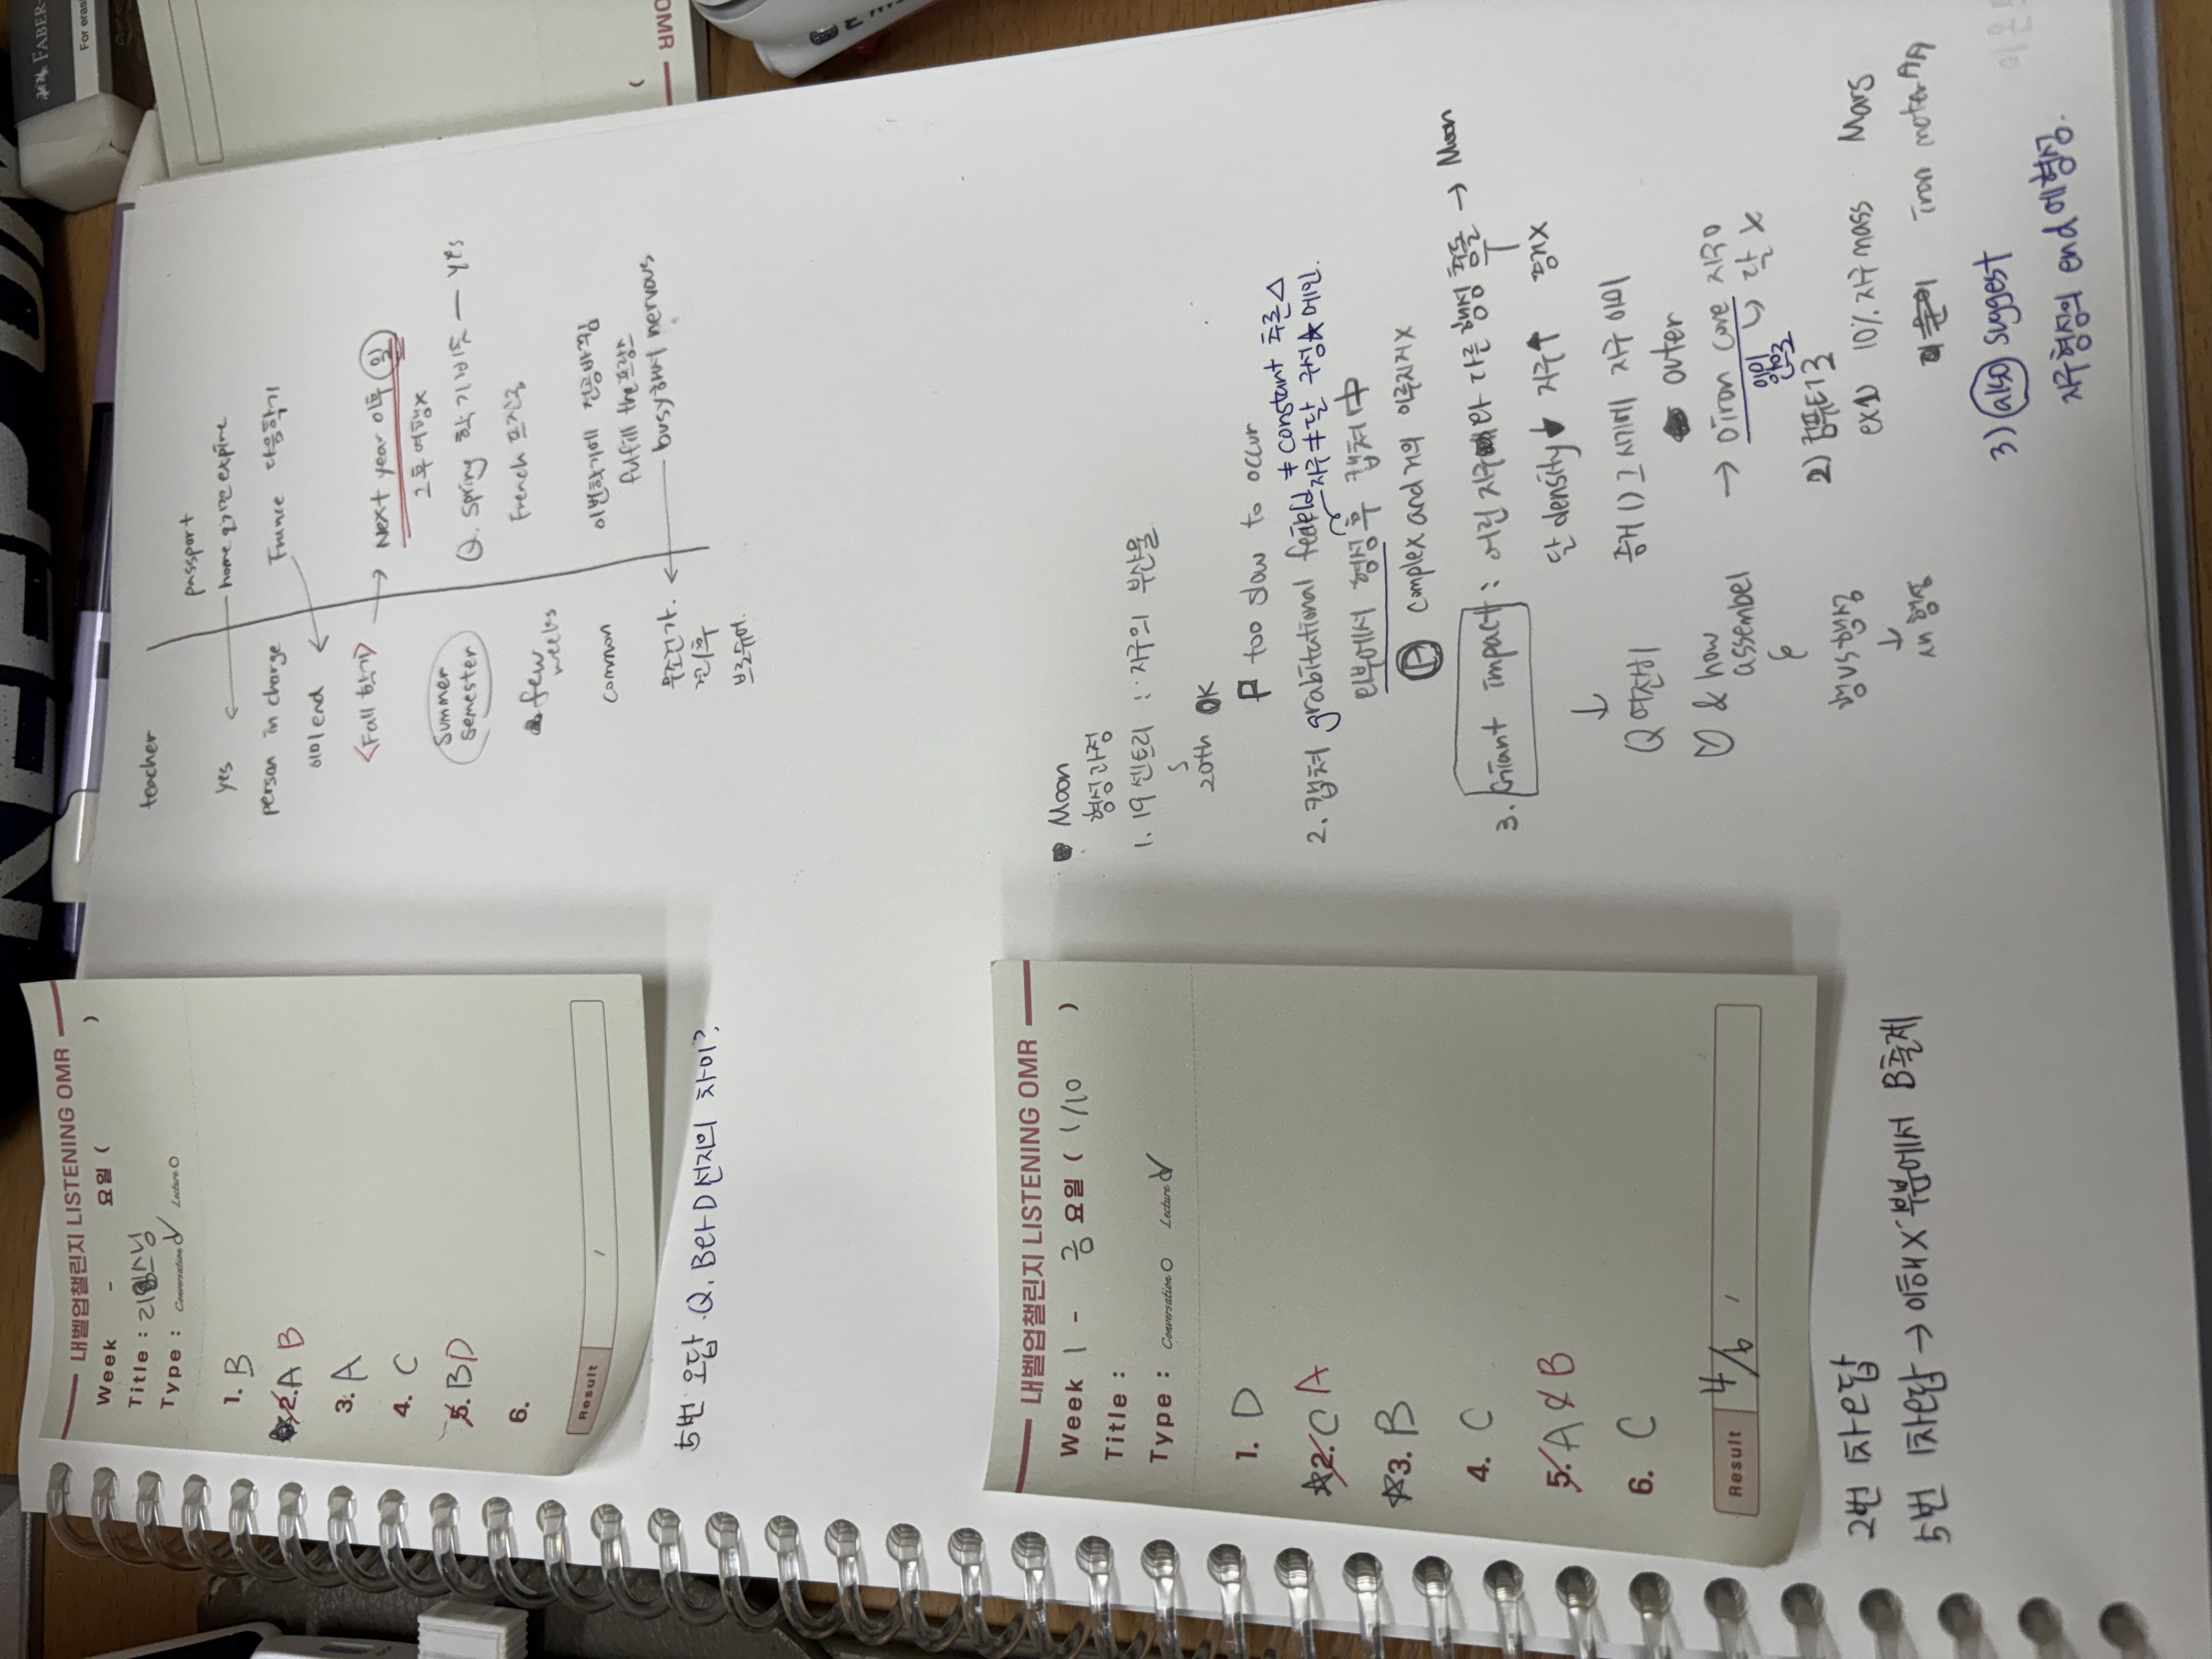 내벨업챌린지 LISTENING OMR
Week - 요일 ( )
Title : 리스닝
Type : Conversation Lecture
1. B
2. A B
3. A
4. C
5. B D
6.
Result
5번 오답 Q. B와 D선지의 차이?
teacher
passport
yes
home 오기전 expire
person in charge
France 다음학기
이미 end
<Fall 학기>
Next year 이후 일
그 후 여행x
Summer semester
Q. Spring 학기 비슷 — yes
few weeks
French 모진국
common
이번학기에 전공바꿈
fulfill the
busy해서 nervous
브로슈어.
내벨업챌린지 LISTENING OMR
Week 1 - 금 요일 ( 1/10 )
Title :
Type : Conversation Lecture
1. D
2. C A
3. B
4. C
5. A B
6. C
Result 4/6
2번 1차오답
5번 1차답 → 이해X 부분에서 B출제
Moon
형성과정
1. 19 센트리 : 지구의 부산물
20th OK
too slow to occur
2. 캡쳐 grabitational ≠ constant
지구≠달 구성 메인.
외부에서 형성 후 캡쳐
complex and 거의 이루지지X
3. Giant impact : 어린 지구와 다른 행성 충돌 → Moon
달 density↓ 지구↑ 행x
Q 여전히
증거 1) 그 시기에 지구 이미
outer
& how assembel
→ iron core 지구o
이미 안으로
달 x
행 vs 행성
↓
새 행동
2) 컴퓨터 3
ex) 10% 지구 mass Mars
iron
3) also suggest
지구형성의 end에 형성.